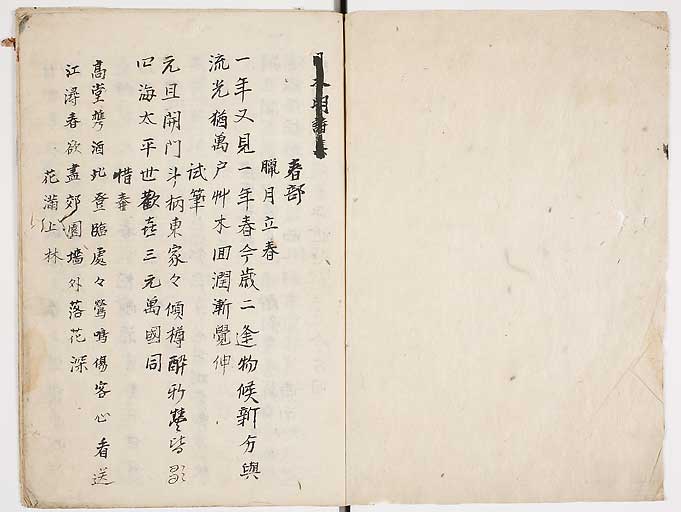 日本明詩集
春部
臘月立春
一年又見一年春今歳二逢物候新分與
流光猶萬戸艸木回潤漸覺伸
試筆
元旦開門斗柄東家々傾樽酔新豐皆
四海太平世歡喜三元萬國同
惜春
高堂携酒此登臨處々鶯鳴傷客心看送
江潯春欲盡郊園墻外落花深
花滿上林